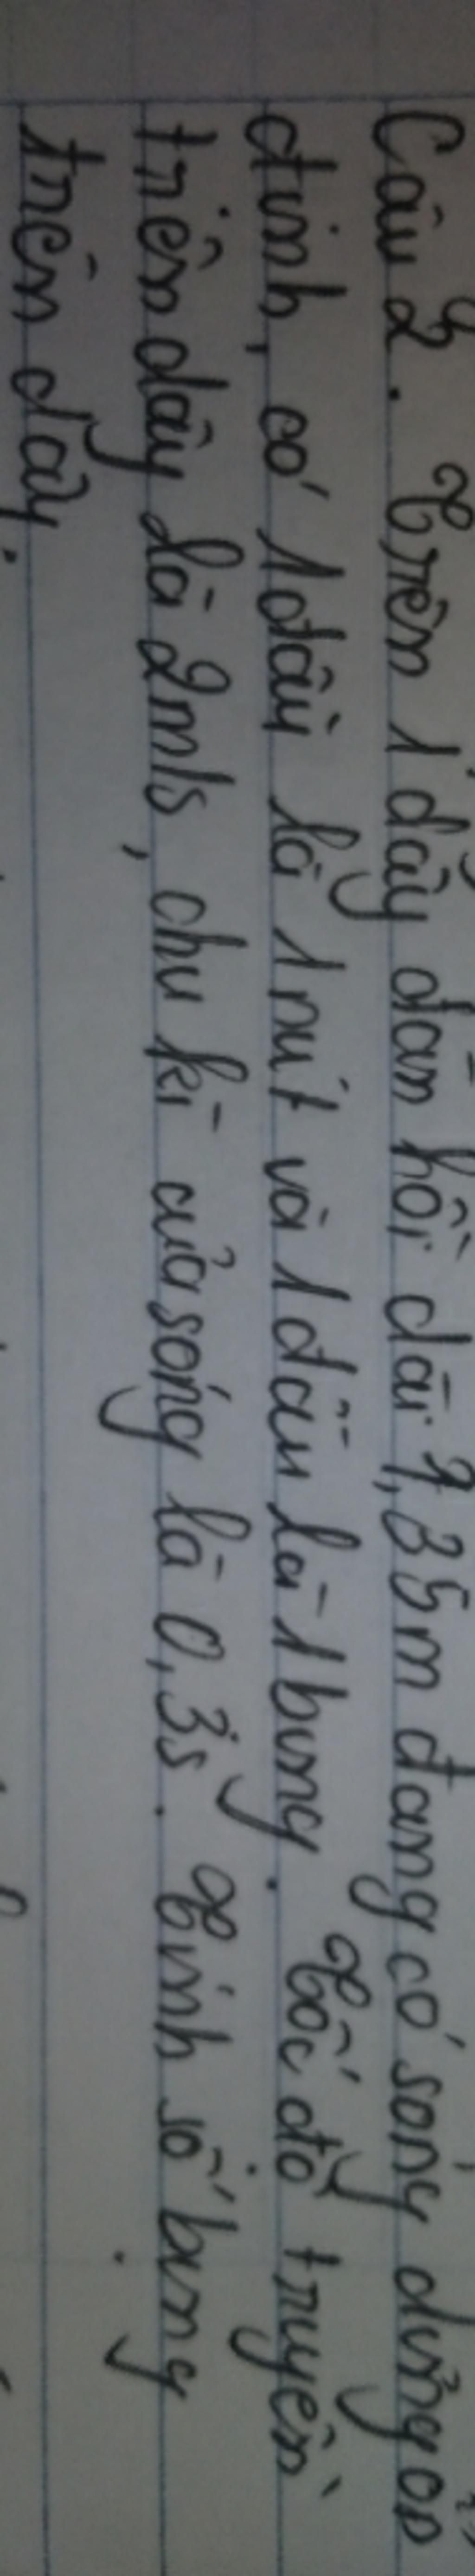 Câu 2. Trên 1 dây đàn hồi dài 1,35m đang có sóng dừng ổn
định, có 1 đầu là 1 nút và 1 đầu là 1 bụng. Tốc độ truyền
trên dây là 2m/s, chu kì của sóng là 0,3s. Tính số bụng
trên dây.